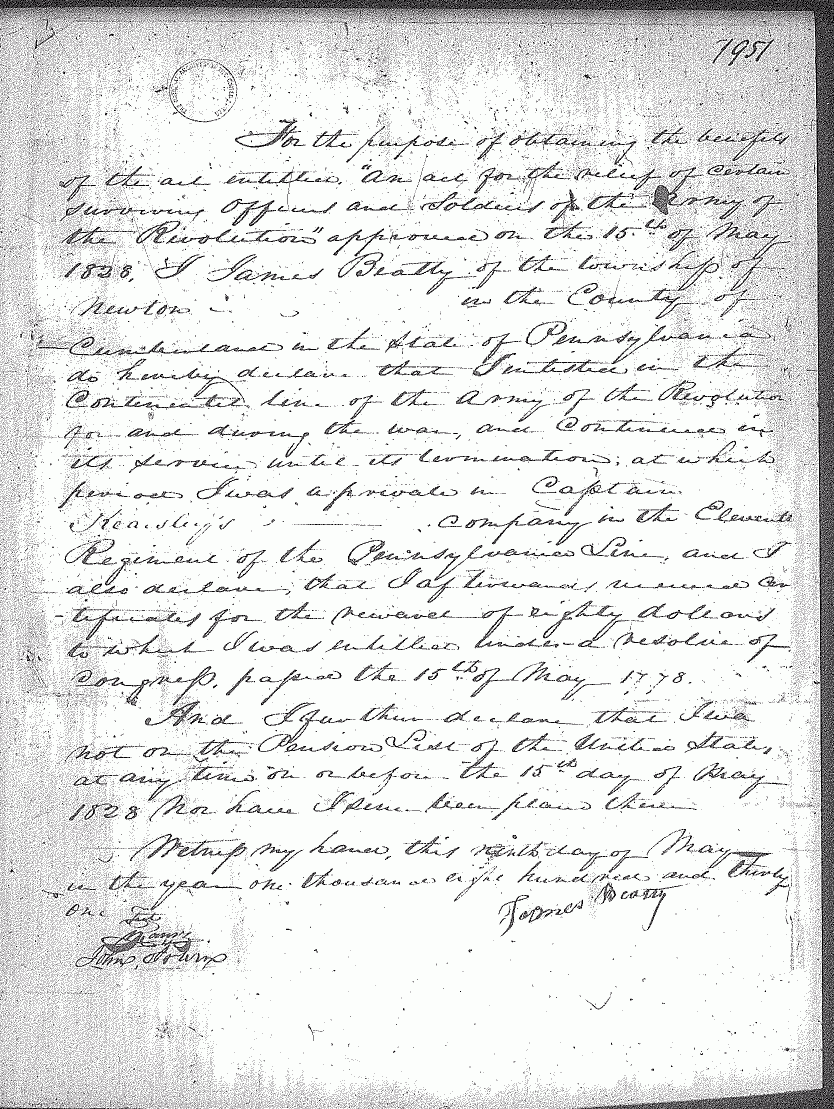 7951
For the purpose of obtaining the benefits
of the act entitled, "An act for the relief of certain
surviving Officers and Soldiers of the Army of
the Revolution" approved on the 15th of May
1828, I James Beatty of the township of
Newton in the County of
Cumberland in the State of Pennsylvania
do hereby declare that I inlisted in the
Continental line of the Army of the Revolution
for and during the war, and Continued in
its service until its termination, at which
period I was a private in Captain
Kearsley's company in the Eleventh
Regiment of the Pennsylvania Line, and I
also declare, that I afterwards received cer
-tificates for the reward of eighty dollars
to which I was entitled under a resolve of
Congress, passed the 15th of May 1778.
And I further declare that I was
not on the Pension List of the United States
at any time on or before the 15th day of May
1828 Nor have I since been placed there
Witness my hand, this ninth day of May
in the year one thousand eight hundred and thirty
one
James Beatty
John